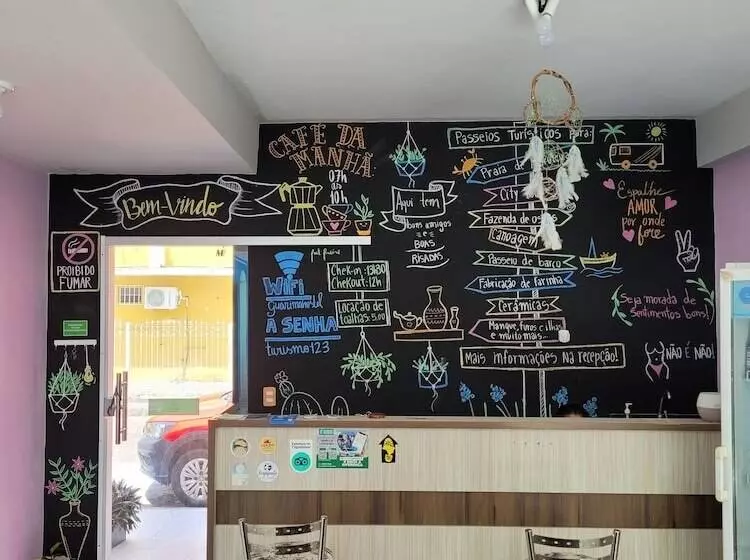 CAFÉ DA
MANHÃ
07h
às
10h
Bem-Vindo
PROIBIDO
FUMAR
WiFi
A SENHA
turismo123
Aqui tem
bons amigos
e
BOAS
RISADAS
Chek-in: 13h00
Chekout: 12h
Locação de
toalhas: 5,00
Passeios Turísticos para:
Praia de
City
Fazenda de
Canoagem
Passeio de barco
Fabricação de farinha
Cerâmicas
Mangue, furos e ilhas
e muito mais...
Mais informações na recepção!
Espalhe
AMOR
por onde
for
Seja morada de
Sentimentos bons!
NÃO É NÃO!